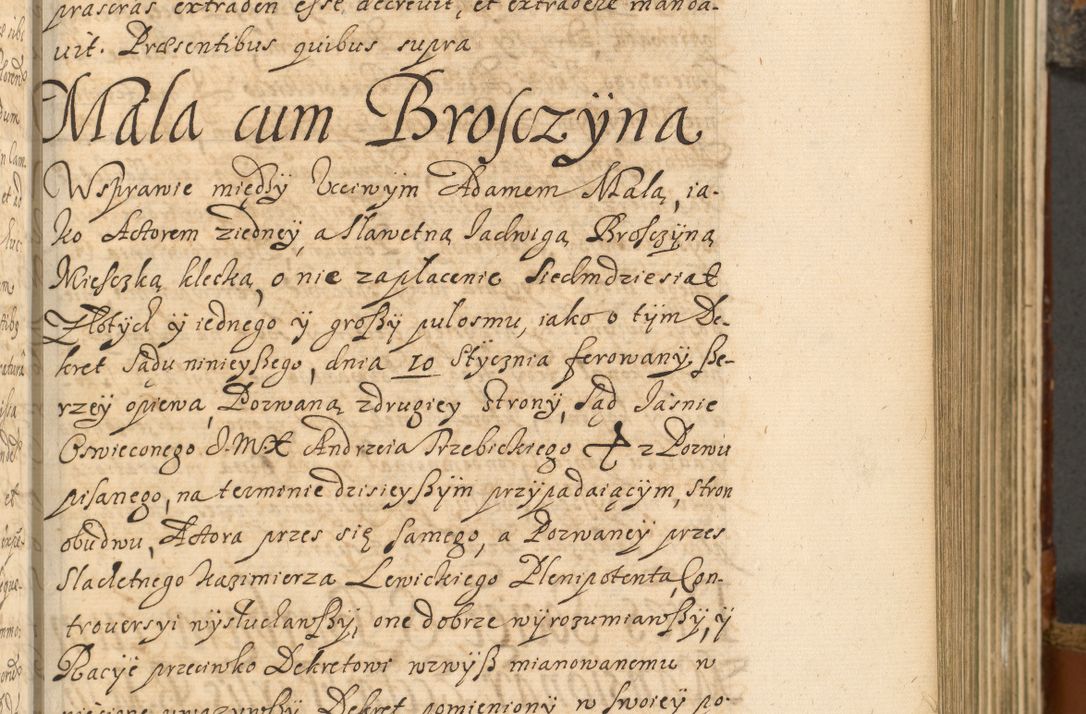 prascras extraden esse decrevit, et extradere manda-
vit. Præsentibus quibus supra
Mala cum Brosczÿna
Wsprawie między Vcciwÿm Adamem Malą, ia-
ko Actorem ziedneÿ, a Sławetną Iadwigą Brosczÿną
Miesczką klecką, o nie zapłacenie Siedmdziesiąt
Złotÿch ÿ iednego ÿ großÿ pułosmu, iako o tÿm De-
kret Sądu ninieÿßego, dnia 10 Stÿcznia ferowanÿ, ße-
rzeÿ opiewa, Pozwaną zdrugieÿ Stronÿ, Sąd Iaśnie
Oswieconego I.M.X Andrzeia Trzebickiego z Pozwu
pisanego, na terminie dzisieÿßÿm przÿpadaiącÿm, stron
obudwu, Actora przes się samego, a Pozwaneÿ przes
Slachetnego Kazimierza Lewickiego Plenipotenta, Con-
troversyi wÿsłuchawßÿ, one dobrze wÿrozumiawßÿ, ÿ
Racÿe przeciwko Dekretowi wzwÿß mianowanemu w
Dekret pomienionÿ w swoieÿ po-